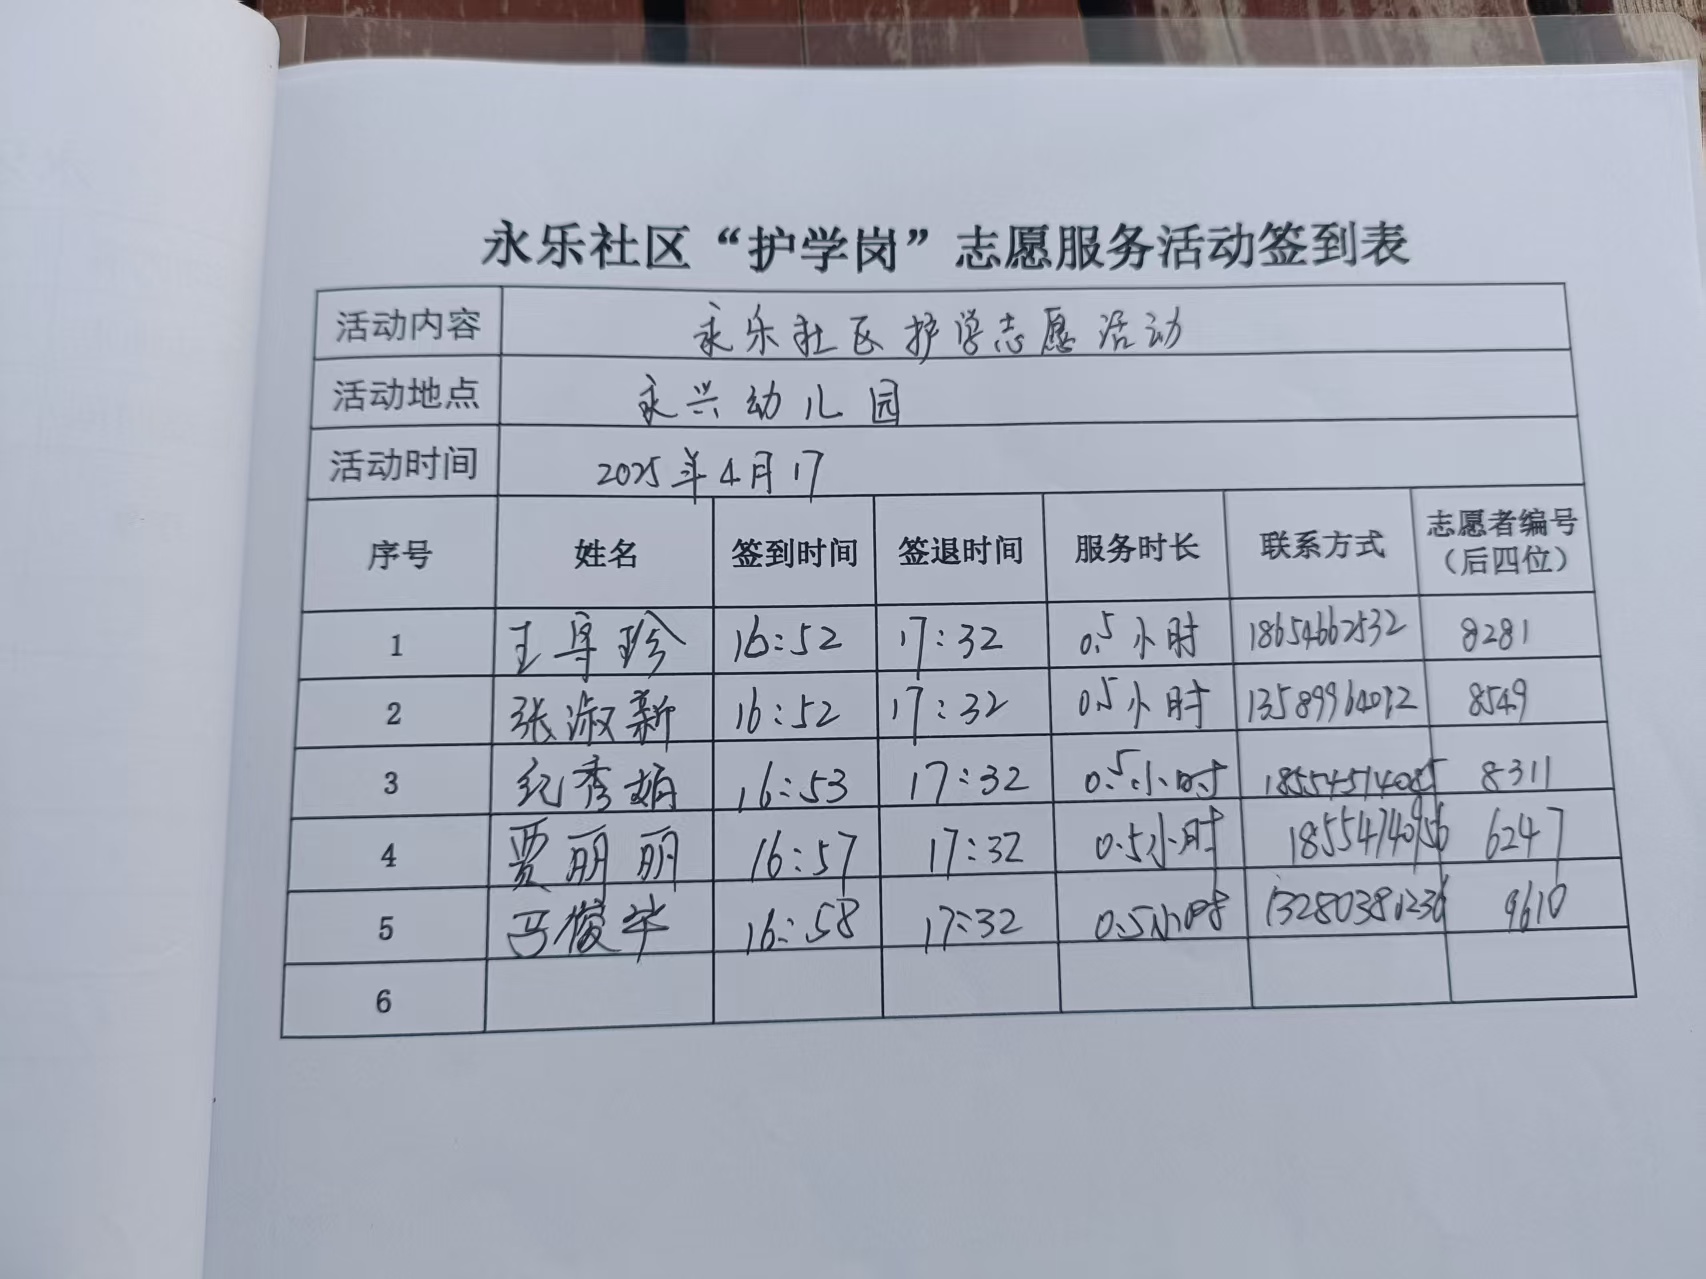 永乐社区“护学岗”志愿服务活动签到表
活动内容 永乐社区护学志愿活动
活动地点 永兴幼儿园
活动时间 2025年4月17
序号 姓名 签到时间 签退时间 服务时长 联系方式 志愿者编号（后四位）
1 王寻珍 16:52 17:32 0.5小时 18654662532 8281
2 张淑新 16:52 17:32 0.5小时 13589964012 8549
3 纪秀娟 16:53 17:32 0.5小时 18554514085 8311
4 贾丽丽 16:57 17:32 0.5小时 18554740956 6247
5 马俊华 16:58 17:32 0.5小时 13280381236 9610
6